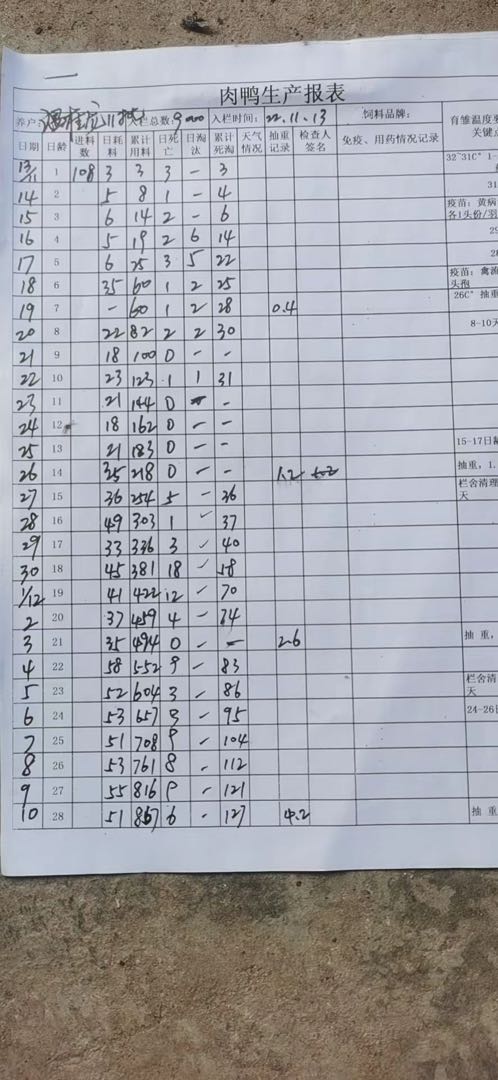 肉鸭生产报表
养户: 11批 入栏总数: 9000 入栏时间: 22.11.13 饲料品牌:
日期 日龄 进料数 日耗料 累计用料 日死亡 日淘汰 累计死淘 天气情况 抽重记录 检查人签名 免疫、用药情况记录 育雏温度 关键点
13/11 1 108 3 3 3 - 3 32~31C° 1-
14 2 5 8 1 - 4 31
15 3 6 14 2 - 6 疫苗:黄病 各1头份/羽
16 4 5 19 2 6 14 29
17 5 6 25 3 5 22 28
18 6 35 60 1 2 25 疫苗:禽流 头孢
19 7 - 60 1 2 28 0.4 26C° 抽重
20 8 22 82 2 2 30 8-10天
21 9 18 100 0 - -
22 10 23 123 1 1 31
23 11 21 144 0 - -
24 12 18 162 0 - -
25 13 21 183 0 - - 15-17日龄
26 14 35 218 0 - - 1.2 抽重,1.
27 15 36 254 5 - 36 栏舍清理 天
28 16 49 303 1 - 37
29 17 33 336 3 - 40
30 18 45 381 18 - 58
1/12 19 41 422 12 - 70
2 20 37 459 4 - 74
3 21 35 494 0 - - 2.6 抽 重,
4 22 58 552 9 - 83
5 23 52 604 3 - 86 栏舍清 天
6 24 53 657 9 - 95 24-26日
7 25 51 708 9 - 104
8 26 53 761 8 - 112
9 27 55 816 9 - 121
10 28 51 867 6 - 127 4.2 抽 重